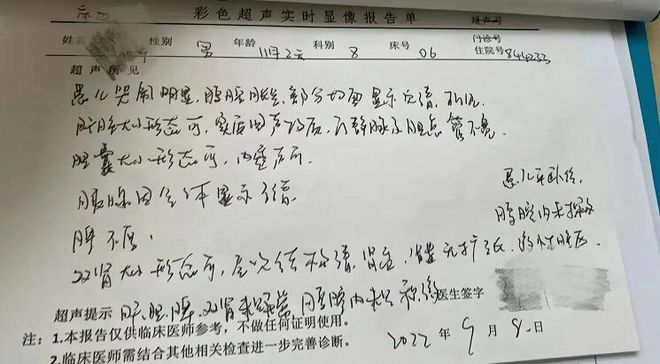 彩色超声实时显像报告单 超声号
姓名 性别 男 年龄 11月2天 科别 8 床号 06 门诊号
住院号 844233
超声所见
患儿哭闹明显,腹腔胀气,部分切面显示欠清,
肝脏大小形态可,实质回声均质,门静脉及胆总管不宽。
胆囊大小形态可,内壁
胰腺因 体显示欠清
脾不厚。
患儿平卧位,
腹腔内未探及
双肾大小形态可,层次结构清,肾盂、肾盏无扩张
超声提示 肝、胆、脾、双肾未 腹腔内未 积液 医生签字
注:1.本报告仅供临床医师参考,不做任何证明使用。
2022年9月8日
2.临床医师需结合其他相关检查进一步完善诊断。